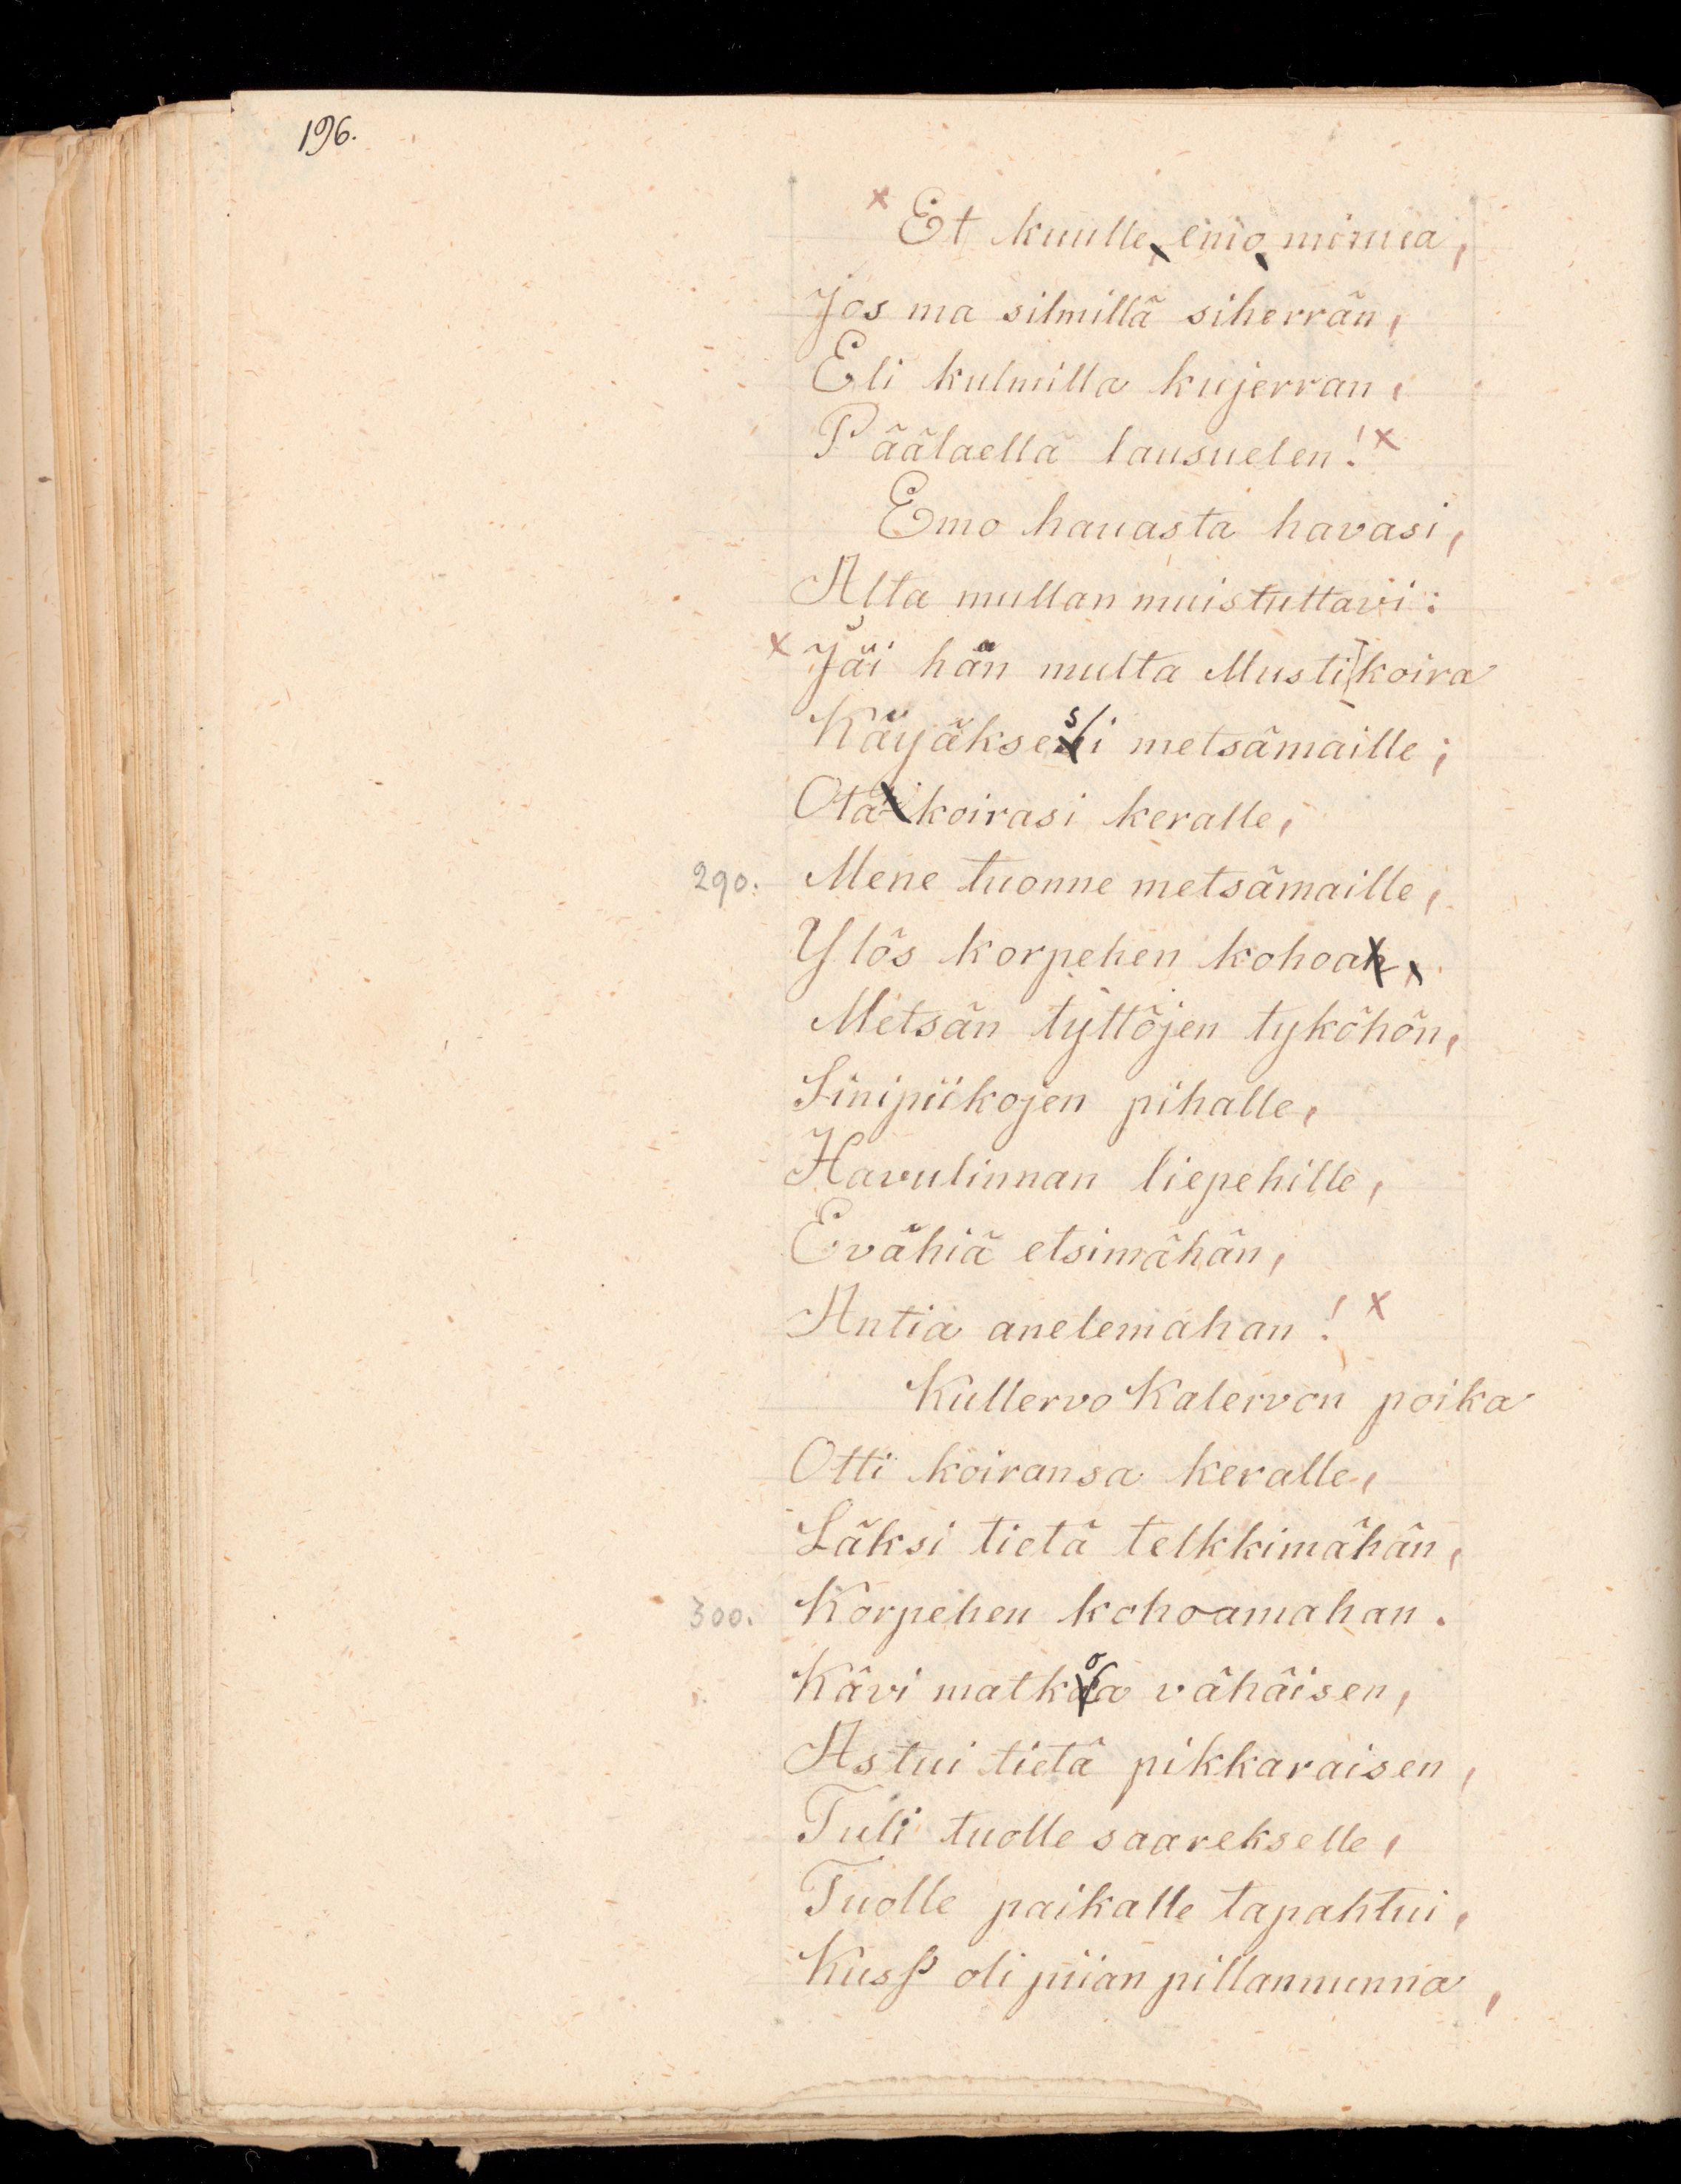 196.
Et kuulle, emo, minua,
Jos ma silmillä siherrän,
Eli kulmilla kujerran,
Päälaella lausuelen!
Emo hauasta havasi,
Alta mullan muistuttavi:
Jäi hän multa Musti koira
Käyäksesi metsämaille;
Ota koirasi keralle,
290. Mene tuonne metsämaille,
Ylös korpehen kohoa
Metsän tyttöjen tyköhön,
Sinipiikojen pihalle,
Havulinnan liepehille,
Evähiä etsimähän,
Antia anelemahan!
Kullervo Kalervon poika
Otti koiransa keralle,
Läksi tietä telkkimähän,
300. Korpehen kohoamahan.
Kävi matkoa vähäisen,
Astui tietä pikkaraisen,
Tuli tuolle saarekselle,
Tuolle paikalle tapahtui,
Kuss' oli piian pillannunna,